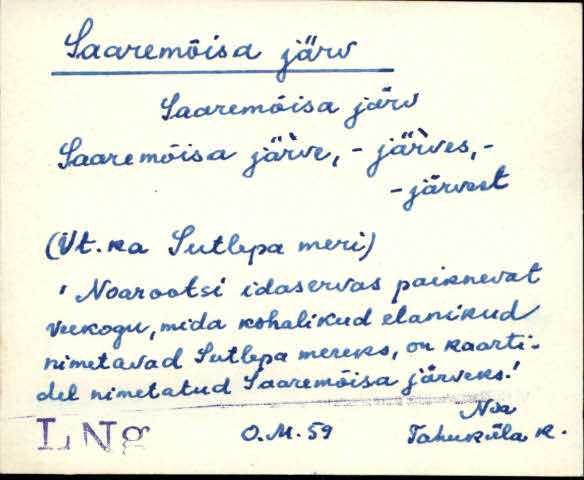 Saaremõisa järv
Saaremõisa järv
Saaremõisa jär̀ve, - jär̀ves, -
- järvest
(Vt. ka Sutlepa meri)
' Noarootsi idaservas paiknevat
veekogu, mida kohalikud elanikud
nimetavad Sutlepa mereks, on kaarti-
del nimetatud Saaremõisa järveks.'
LNg O.M. 59 Noa
Tahuküla k.